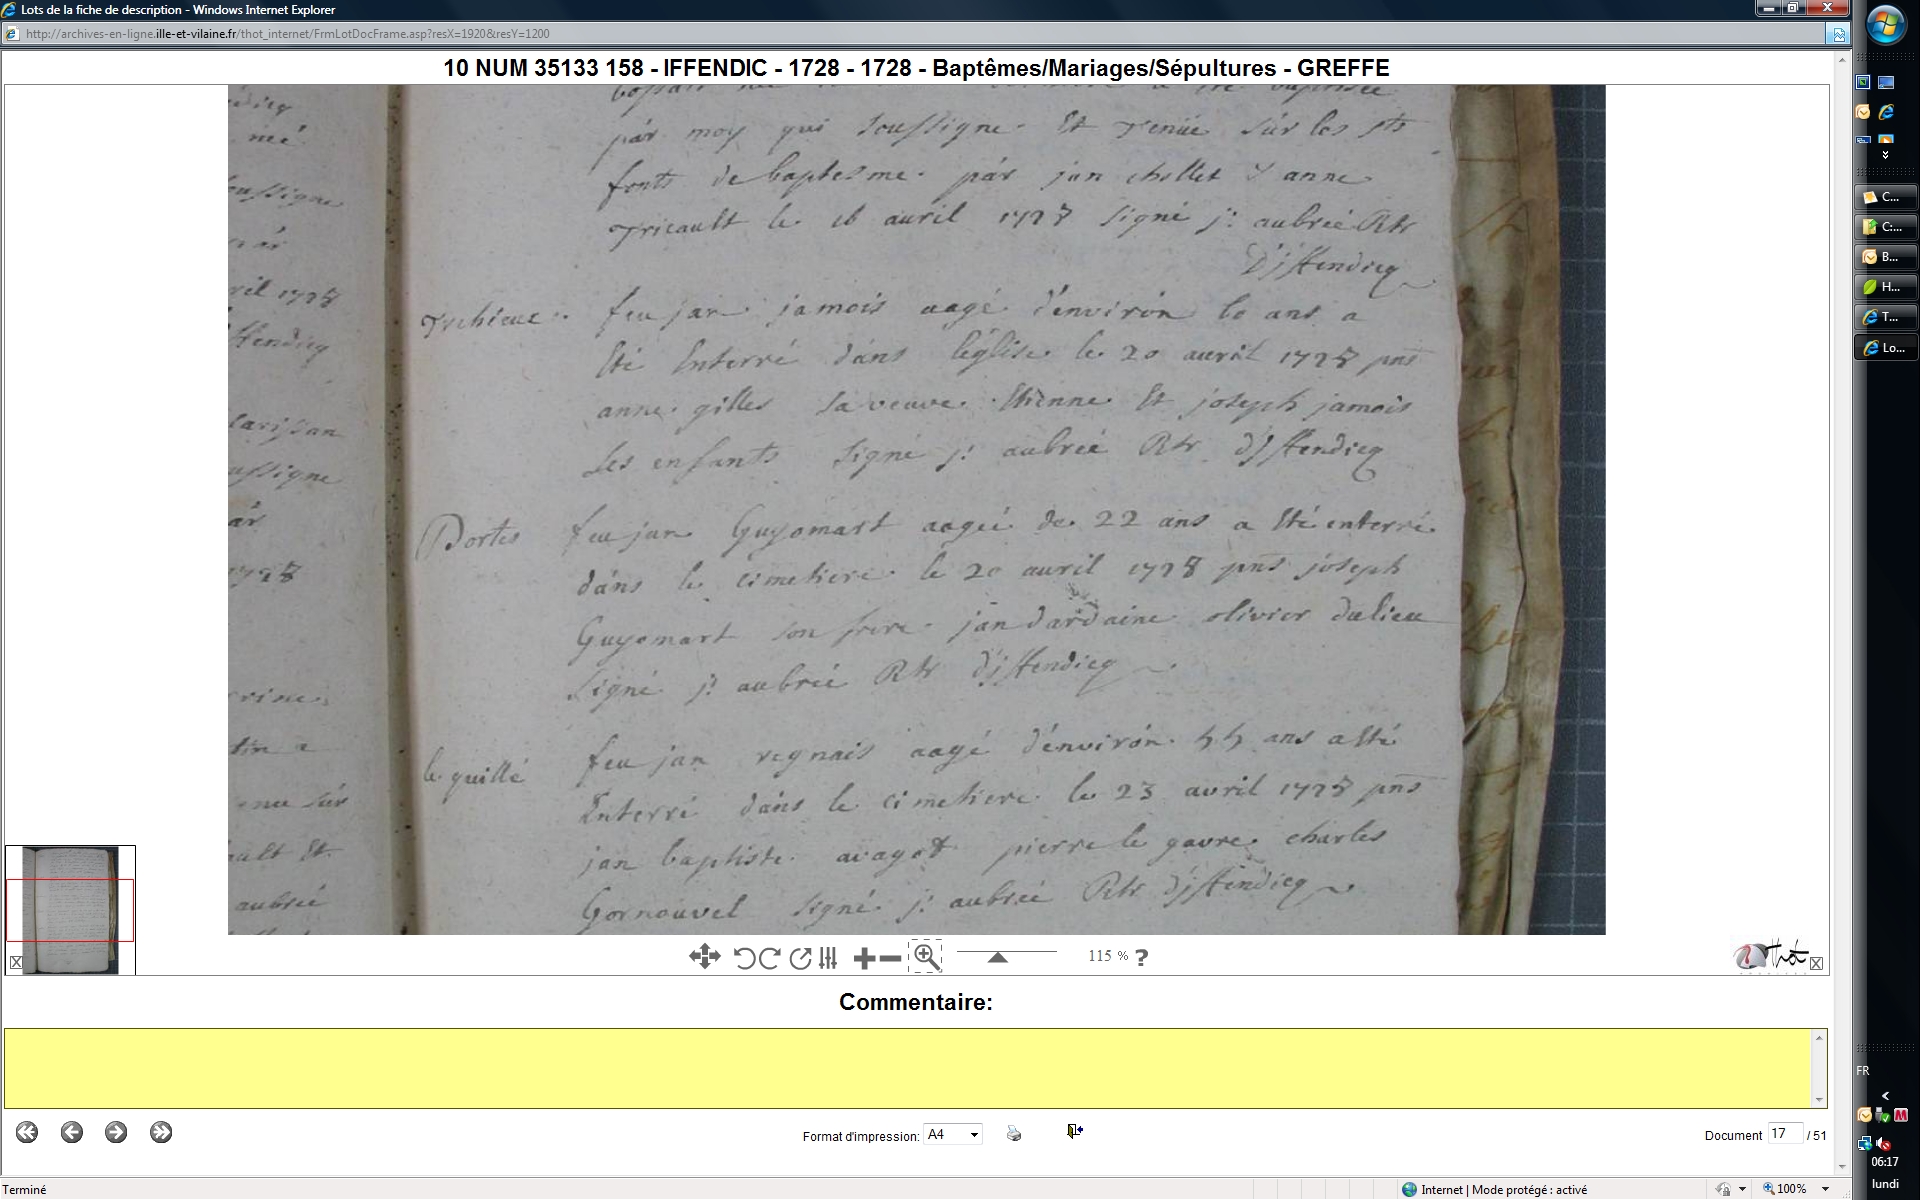 Lots de la fiche de description - Windows Internet Explorer
http://archives-en-ligne.ille-et-vilaine.fr/thot_internet/FrmLotDocFrame.asp?resX=1920&resY=1200
10 NUM 35133 158 - IFFENDIC - 1728 - 1728 - Baptêmes/Mariages/Sépultures - GREFFE
par moy qui soussigne. Et tenüe sur les sts
fonts de baptesme. par jan chollet & anne
Tricault le 16 avril 1728 signé j: aubreé Rtr
D'jffendicq
feu jan jamois aagé d'environ 60 ans a
Eté Enterré dans l'église le 20 avril 1728 pnts
anne gilles sa veuve Etienne Et joseph jamois
ses enfants signé j: aubreé Rtr d'jffendicq
Portes feu jan Guyomart aageé de 22 ans a Eté enterré
dans le cimetiere le 20 avril 1728 pnts joseph
Guyomart son frere jan dardaine olivier dulieu
signé j: aubreé Rtr d'jffendicq
le quillé feu jan regnais aagé d'environ 55 ans a Eté
Enterré dans le cimetiere le 23 avril 1728 pnts
jan baptiste pierre le gavre charles
Gornouvel signé j: aubreé Rtr d'jffendicq
ril 1728
ffendicq
ussigne
1728
aubreé
115 % ?
Thot
Commentaire:
Format d'impression: A4
Document 17 / 51
Terminé
Internet | Mode protégé : activé
100%
C...
C:...
B...
H...
T...
Lo...
FR
06:17
lundi